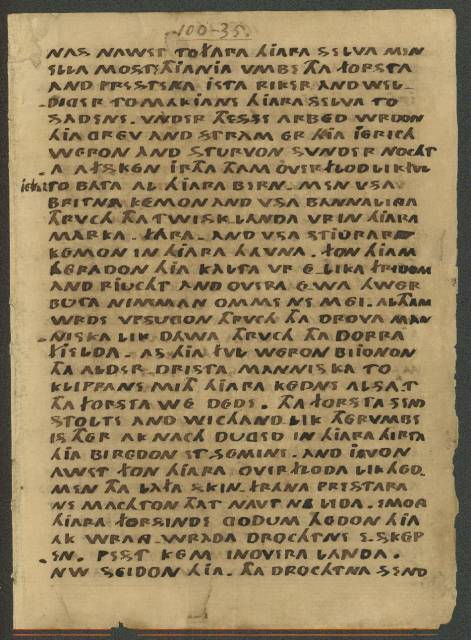 100-35.
NAS NAWET TO FARA HIARA SELVA MEN
ELLA MOSTE THIANIA VMBE THA FORSTA
AND PRESTERA IETA RIKER AND WEL-
DIGER TO MAKIANE HIARA SELVA TO
SADENE. VNDER THESSE ARBED WRDON
HIA GREV AND STRAM ER HIA IERICH
WERON AND STURVON SUNDER NOCHT
A AFSKEN IRTHA THAM OVERFLODLIK FUL
IEF TO BATA AL HIARA BERN. MEN VSA
BRITNA KEMON AND VSA BANNALINGA
THRVCH THA TWISKLANDA VR IN HIARA
MARKA. FARA. AND VSA STIURAR
KEMON IN HIARA HAVNA. FON HIAM
HERADON HIA KALTA VR E-LIKA FRIDOM
AND RIUCHT AND OVERA E-WA HWER
BUTA NIMMAN OMME NE MEI. ALTHAM
WRDE VPSUGON THRUCH THA DROVA MAN
NISKA LIK DAWA THRUCH THA DORRA
FIELDA. AS HIA FUL WERON BIIONON
THA ALDER-DRISTA MANNISKA TO
KLIPPANE MITH HIARA KEDNE ALSA.T
THA FORSTA WE DEDE. THA FORSTA SEND
STOLTE AND WICHANDLIK THERUMBE
IS THER AK NACH DUGED IN HIARA HIRTA
HIA BIREDON ET SEMINE. AND IEVON
AWET FON HIARA OVERFLODALIKHED.
MEN THA LAFA SKIN-FRANA PRESTARA
NE MACHTON THAT NAVT NE LIDA. EMONG
HIARA FORSINDE GODUM HEDON HIA
AK WRANG-WRADA DROCHTNE E-SKEP
EN. PEST KEM INOVERA LANDA.
NW SEIDON HIA. THA DROCHTNA SEND